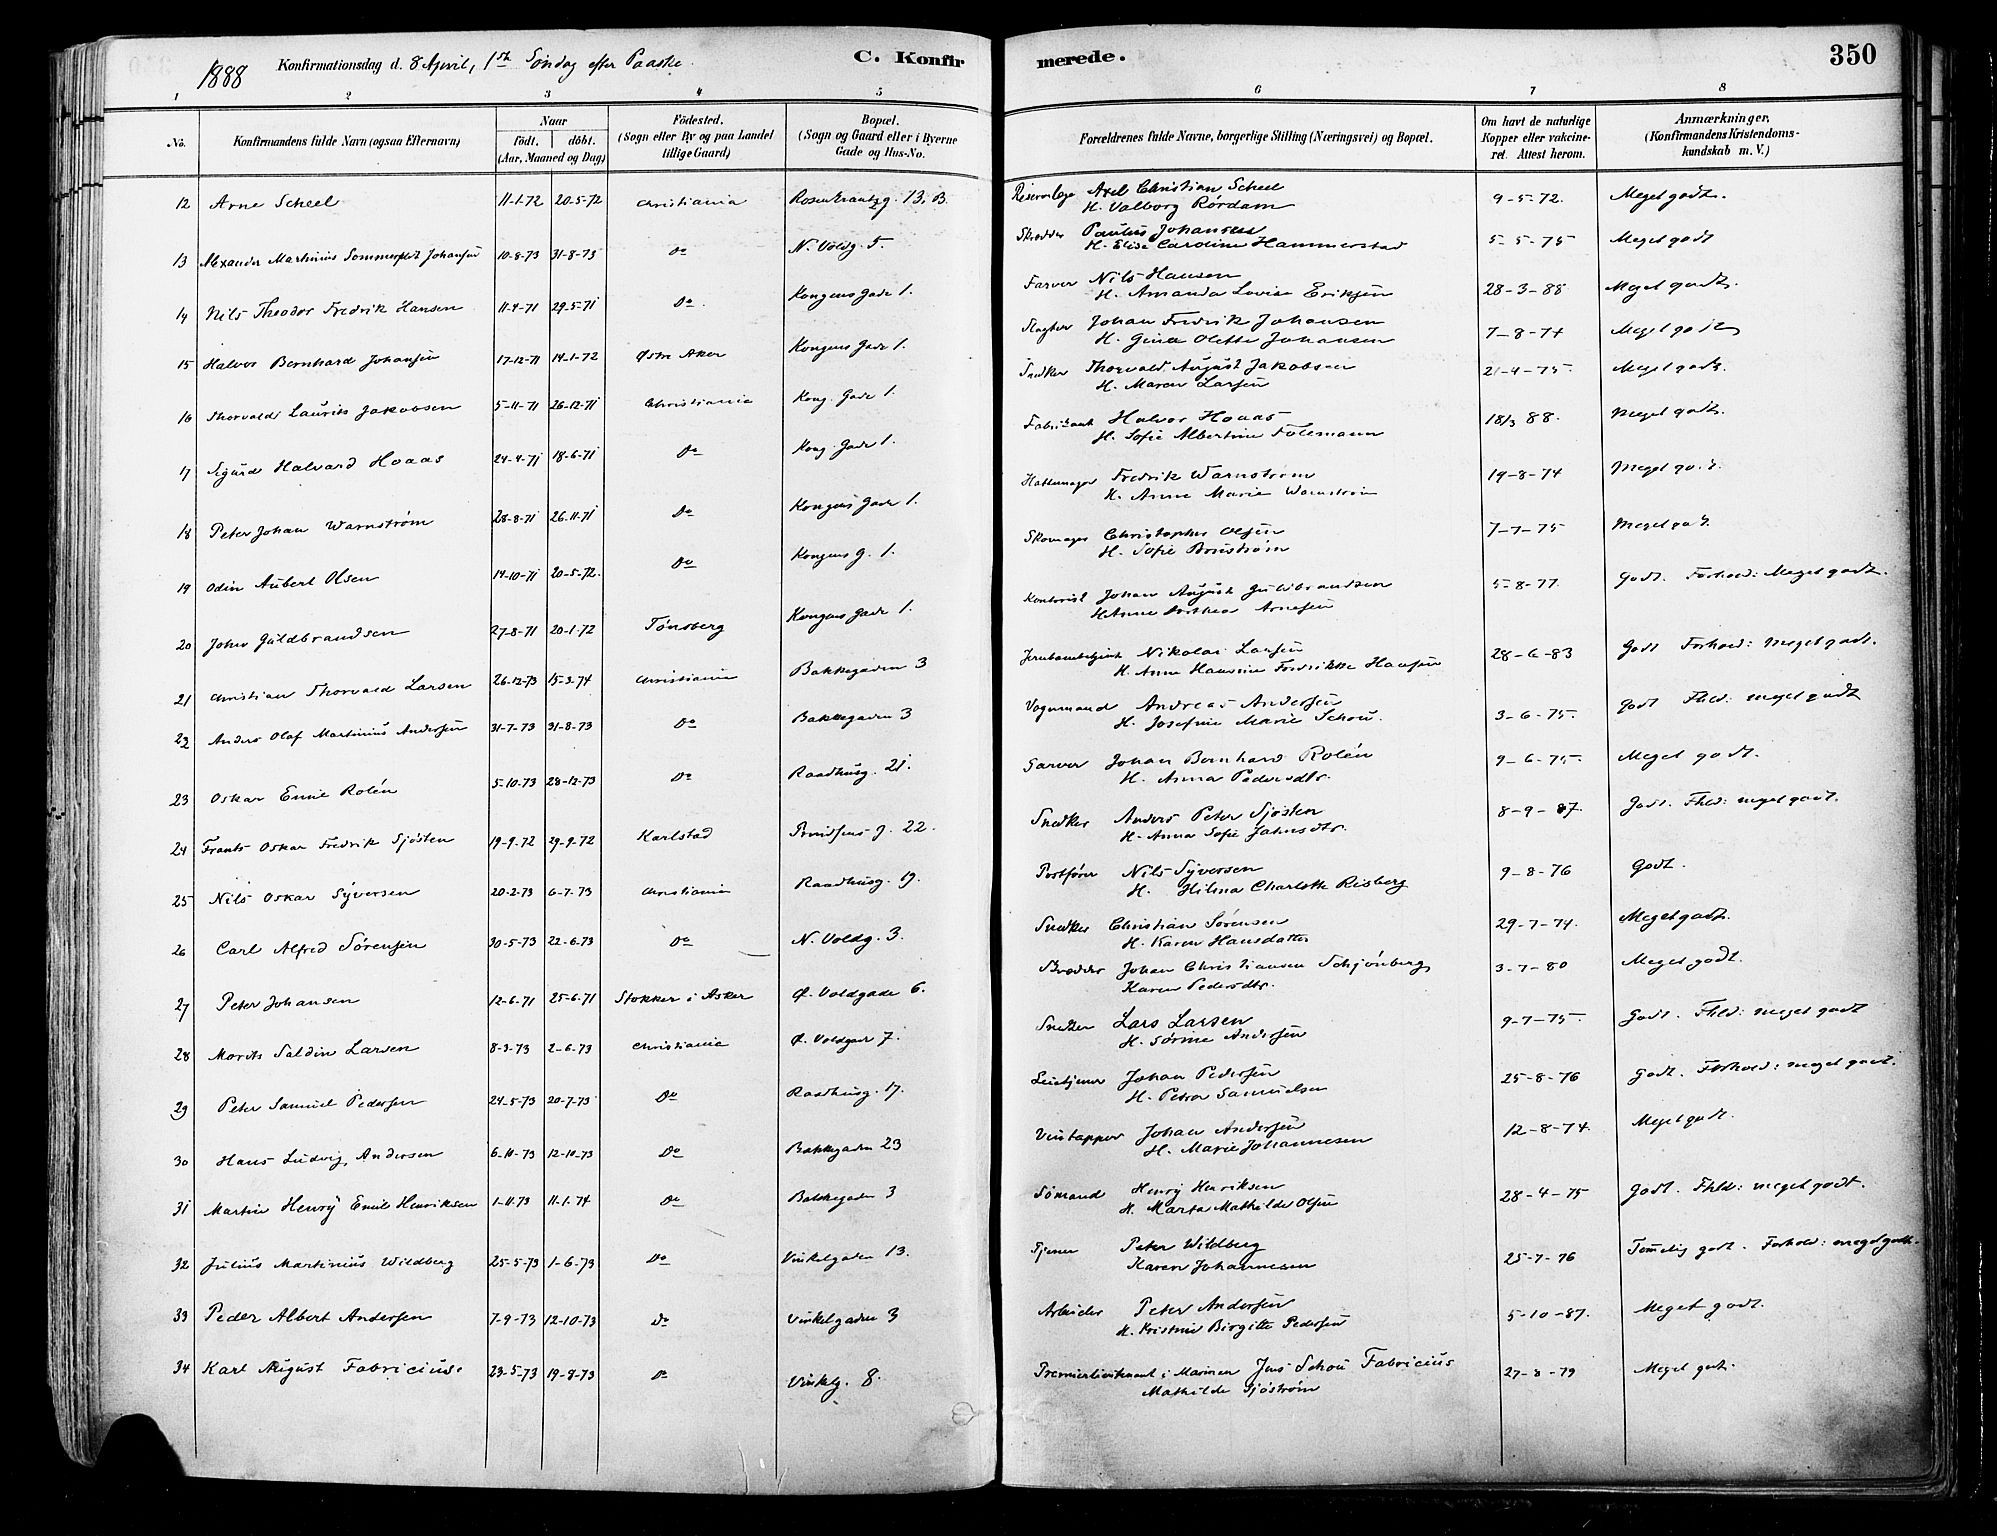 1888 Konfirmationsdag d. 8 April, 1ste Söndag efter Paaske.
C. Konfirmerede.
350
1 2 3 4 5 6 7 8
No. Konfirmandens fulde Navn (ogsaa Efternavn) Naar födt. döbt. (Aar, Maaned og Dag) Födested. (Sogn eller By og paa Landet tillige Gaard) Bopæl. (Sogn og Gaard eller i Byerne Gade og Hus-No. Forældrenes fulde Navne, borgerlige Stilling (Næringsvei) og Bopæl. Om havt de naturlige Kopper eller vakcineret. Attest herom. Anmærkninger, (Konfirmandens Kristendomskundskab m. V.)
12 Arne Scheel 11-1-72 20-5-72 Christiania Rosenkrantzg. 13. B. Reservelæge Axel Christian Scheel 9-5-72. Meget godt.
H. Valborg Rördam
13 Alexander Martinius Johansen 10-8-73 31-8-73 Do N. Voldg. 5. Skrædder Paulus Johansen 5-5-75 Meget godt
H. Elise Cardine Hammerstad
14 Nils Theodor Fredrik Hansen 11-4-71 29-5-71 Do Kongens Gade 1. Farver Nils Hansen 28-3-88 Meget godt.
H. Amanda Lovise Eriksen
15 Halvor Bernhard Johansen 17-12-71 14-1-72 Østre Aker Kongens Gade 1. Slagter Johan Fredrik Johansen 7-8-74 Meget godt
H. Gina Olette Johansen
16 Thorvald Laurits Jakobsen 5-11-71 26-12-71 Christiania Kong. Gade 1. Snedker Thorvald August Jakobsen 21-4-75. Meget godt.
H. Maren Larsen
17 Sigurd Halvard Hoaas 24-4-71 18-6-71 Do Kong. Gade 1. Fabrikant Halvor Hoaas 18/3 88. Meget godt.
H. Sofie Albertine
18 Peter Johan Warnström 28-8-71 26-11-71 Do Kongens Gade 1. Hattemager Fredrik Warnström 19-8-74 Meget godt.
H. Anne Marie Warnström
19 Odin Aubert Olsen 14-10-71 20-5-72. Do Kongens g. 1. Skomager Christopher Olsen 7-7-75 Meget godt.
H. Sofie Brunström
20 Johan Guldbrandsen 27-8-71 20-1-72 Tönsberg Kongens Gade 1. Kontorist Johan August Guldbrandsen 5-8-77. Godt. Forhold: Meget godt.
H. Anne Dorthea Arnesen
21 Christian Thorvald Larsen 26-12-73 15-3-74 Christiania Bakkegaden 3 Nikolai Larsen 28-6-83 Godt Forhold: Meget godt.
H. Anne Fredrikke Hansen
22 Anders Olaf Martinius Andersen 31-7-73 31-8-73 Do Bakkegaden 3 Vognmand Andreas Andersen 3-6-75. Godt Fhld: meget godt
H. Josefine Marie Schou.
23 Oskar Emil Rolén 5-10-73 28-12-73 Do Raadhusg. 21. Garver Johan Bernhard Rolén 9-6-75. Meget godt.
H. Anna Pedersdtr.
24 Frants Oskar Fredrik Sjösten 19-9-72 29-9-72 Karlstad g. 22. Snedker Anders Peter Sjösten 8-9-87. Godt. Fhld: meget godt.
H. Anna Sofie Jahnsdtr.
25 Nils Oskar Syversen 20-2-73 6-7-73 Christiania Raadhusg. 19. Postfører Nils Syversen 9-8-76 Godt.
H. Hilma Charlotte Risberg
26 Carl Alfred Sörensen 30-5-73 22-6-73 Do N. Voldg. 3. Snedker Christian Sörensen 29-7-74. Meget godt.
H. Karen Hansdatter
27 Peter Johansen 12-6-71 25-6-71 Stokker i Asker Ø. Voldgade 6. Johan Christiansen Schjönberg 3-7-80 Meget godt.
Karen Pedersdtr.
28 Morits Saldin Larsen 8-3-73 2-6-73 Christiania Ø. Voldgad 7. Snedker Lars Larsen 9-7-75. Godt. Fhld: meget godt
H. Sörine Andersen
29 Peter Samuel Pedersen 24-5-73 20-7-73 Do Raadhusg. 17. Johan Pedersen 25-8-76 Godt. Forhold: meget godt.
H. Petra Samuelsen
30 Hans Ludvig Andersen 6-11-73 12-10-73 Do Bakkegaden 23 Vintapper Johan Andersen 12-8-74. Meget godt.
H. Marie Johannesen
31 Martin Henry Emil Henriksen 1-11-73 11-1-74 Do Bakkegaden 3 Sömand Henry Henriksen 28-4-75 Godt. Fhld: meget godt.
H. Marta Mathilde Olsen
32 Julius Martinius Wildberg 25-5-73 1-6-73 Do Vinkelgaden 13. Tjener Peter Wildberg 25-7-76 Temmelig godt. Forhold: meget godt.
Karen Johannesen
33 Peder Albert Andersen 7-9-73 12-10-73 Do Vinkelgaden 3 Arbeider Peter Andersen 5-10-87. Meget godt.
H. Kristine Birgitte Pedersen
34 Karl August Fabricius. 23-5-73 19-9-73 Do Vinkelg. 8. Premierlieutenant i Marinen Jens Schou Fabricius 27-8-79 Meget godt.
Mathilde Sjöström